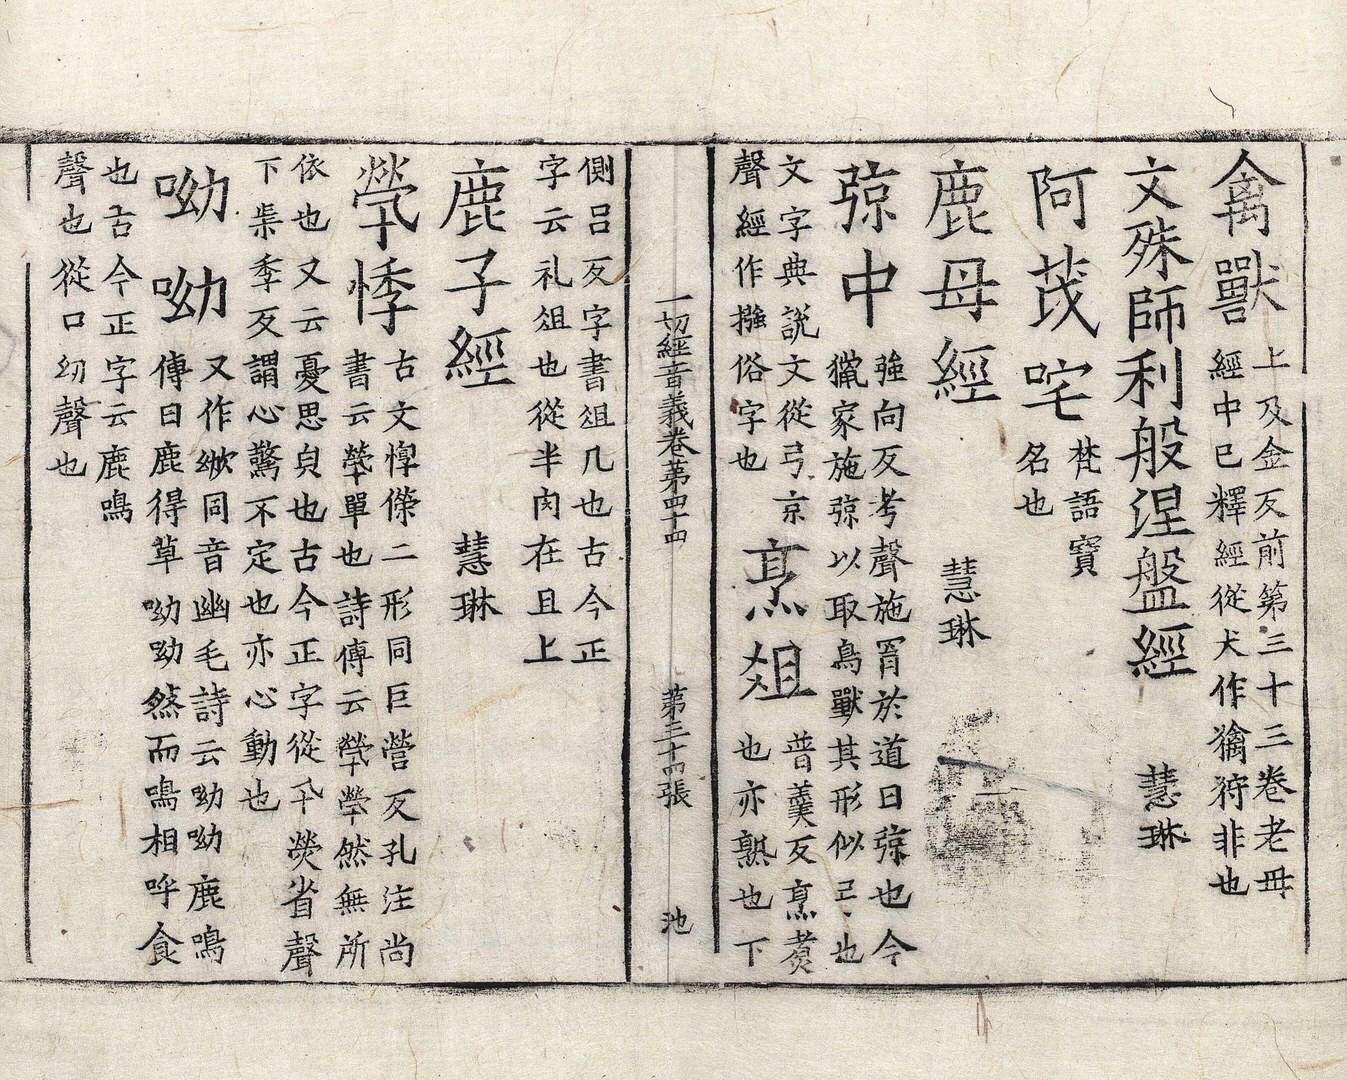 禽獸 上及金反前第三十三卷老母
經中已釋經從犬作獨狩非也
文殊師利般涅盤經 慧琳
阿茂咤 梵語寶
名也
鹿母經 慧琳
弶中 強向反考聲施罥於道曰弶也今
獵家施弶以取鳥獸其形似弓也
文字典說文從弓京
聲經作摾俗字也
烹俎 普羹反烹煑
也亦熟也下
一切經音義卷第四十四 第三十四張 池
側呂反字書俎几也古今正
字云礼俎也從半肉在且上
鹿子經 慧琳
煢悸 古文惸傑二形同巨營反孔注尚
書云煢單也詩傳云煢煢然無所
依也又云憂思皃也古今正字從卂熒省聲
下葵季反謂心驚不定也亦心動也
呦呦 又作欨同音幽毛詩云呦呦鹿鳴
傳曰鹿得草呦呦然而鳴相呼食
也古今正字云鹿鳴
聲也從口幼聲也